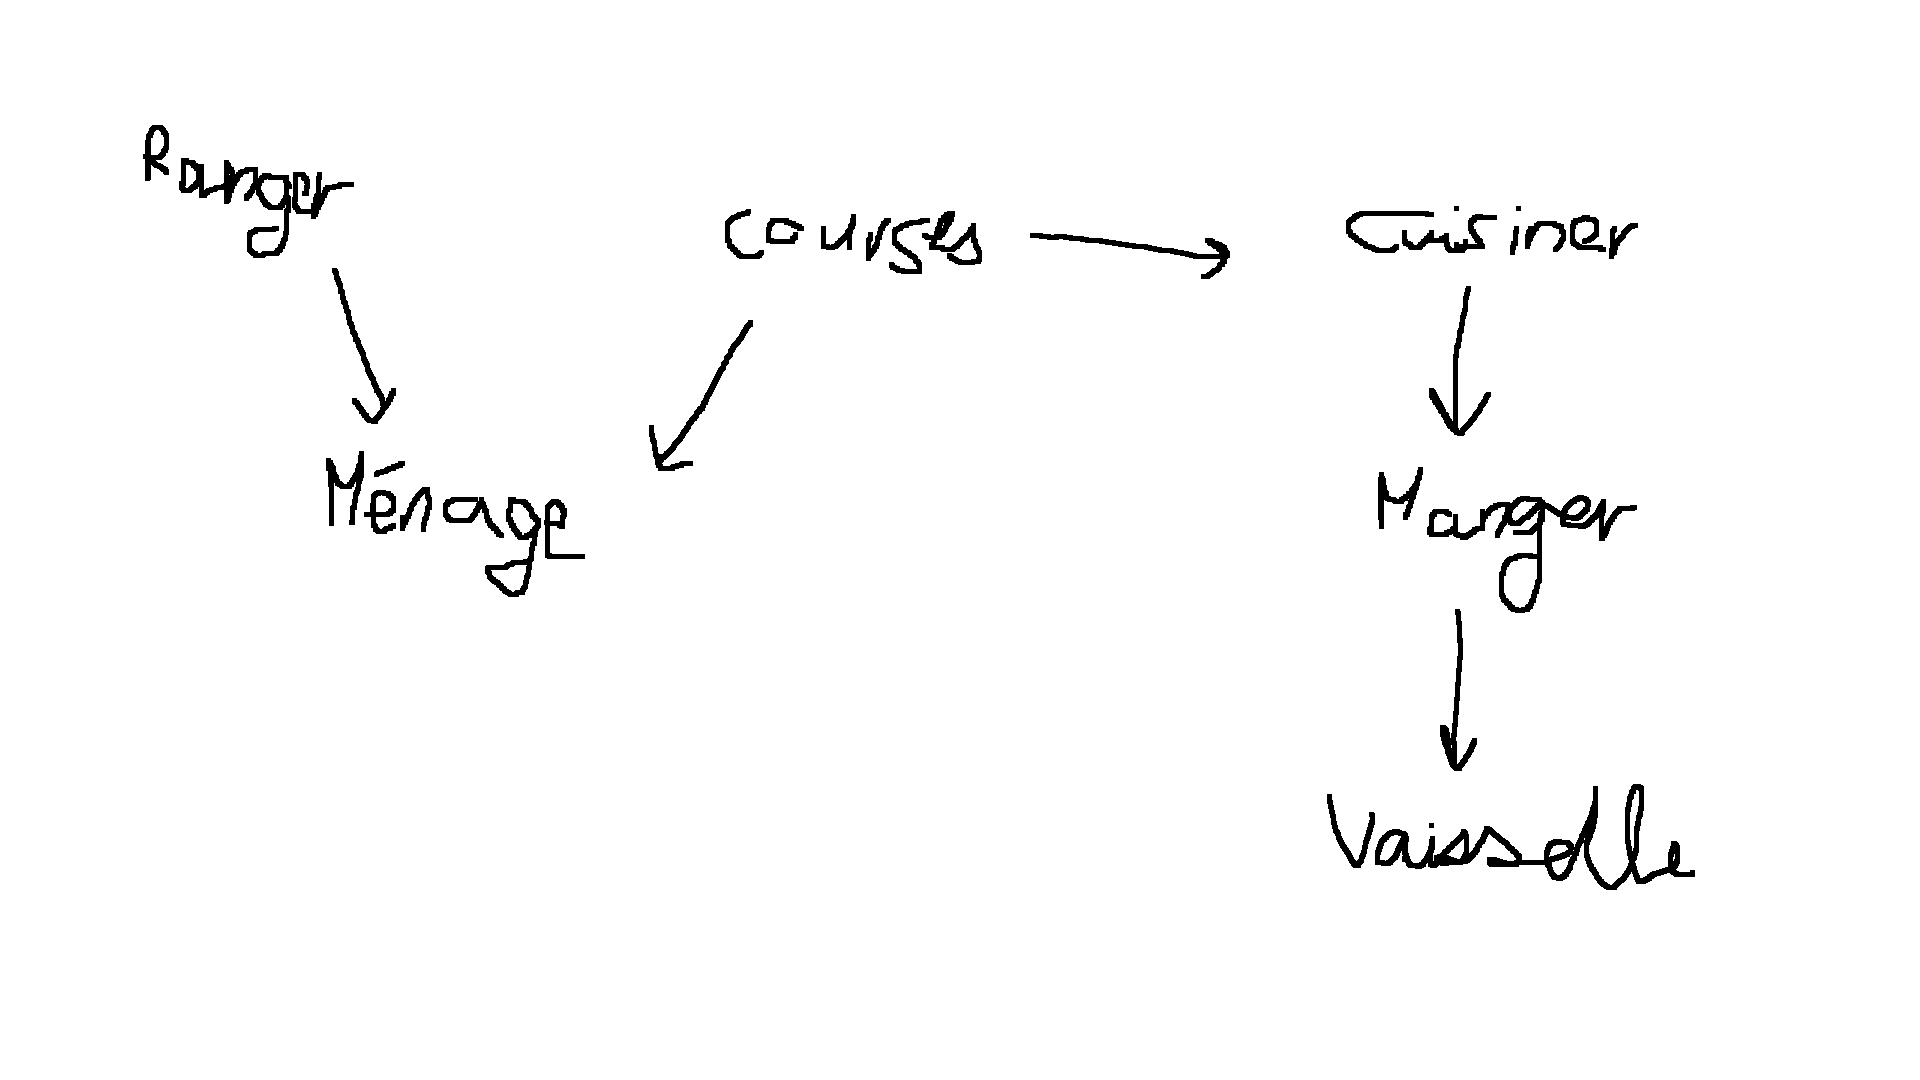 Ranger
Courses
Cuisiner
Ménage
Manger
Vaisselle